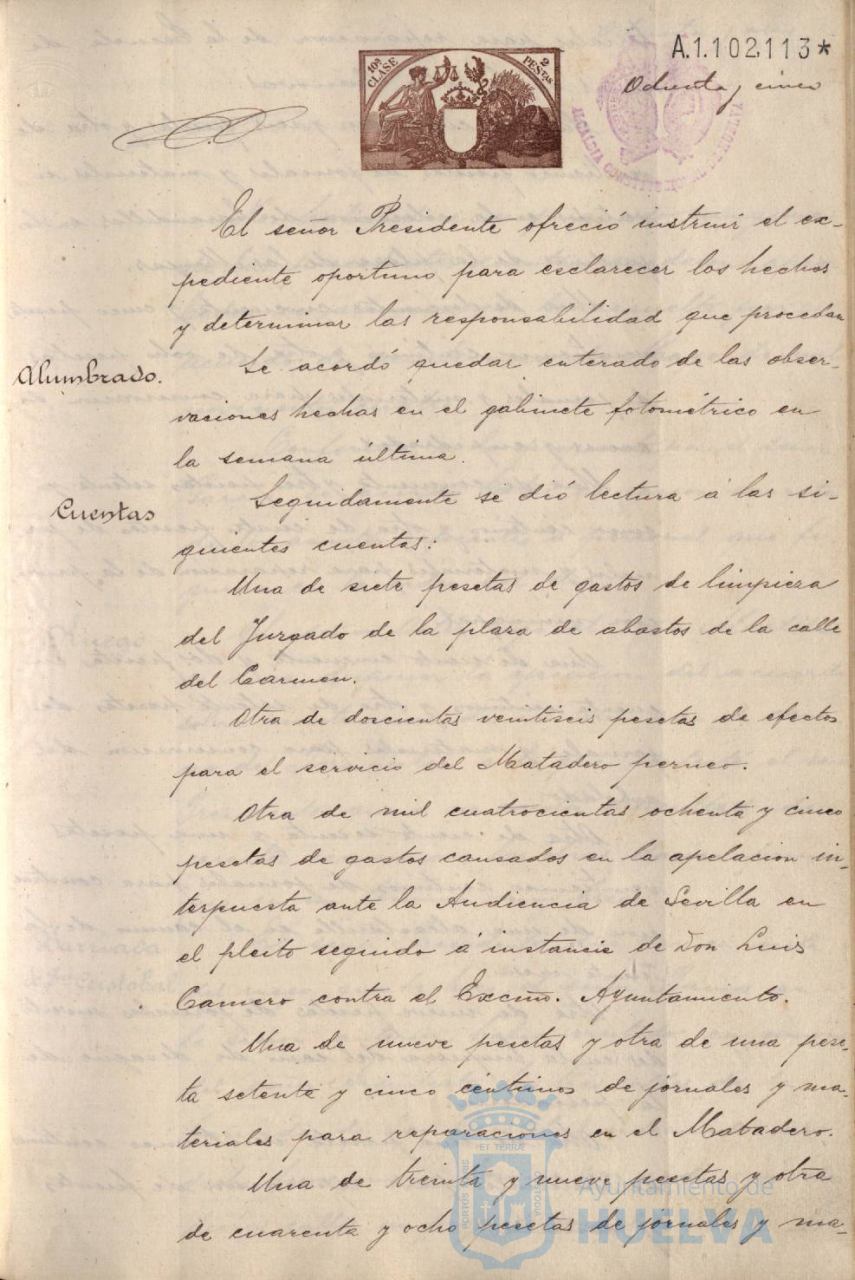 A.1.102,113*
Ochenta y cinco
10ª CLASE
2 PESTAS
ALCALDIA CONSTITUCIONAL DE HUELVA
El señor Presidente ofreció instruir el ex-
pediente oportuno para esclarecer los hechos
y determinar las responsabilidad que procedan
Alumbrado.
Se acordó quedar enterado de las obser-
vaciones hechas en el gabinete fotométrico en
la semana última.
Cuentas
Seguidamente se dió lectura á las si-
guientes cuentas:
Una de siete pesetas de gastos de limpieza
del Juzgado de la plaza de abastos de la calle
del Carmen.
Otra de doscientas veintiseis pesetas de efectos
para el servicio del Matadero
Otra de mil cuatrocientas ochenta y cinco
pesetas de gastos causados en la apelacion in-
terpuesta ante la Audiencia de Sevilla en
el pleito seguido á instancia de Don Luis
Camero contra el Excmo. Ayuntamiento.
Una de nueve pesetas y otra de una pese-
ta setenta y cinco céntimos de jornales y ma-
teriales para reparaciones en el Matadero.
Una de treinta y nueve pesetas y otra
de cuarenta y ocho pesetas de jornales y ma-
PORTUS MARIS ET TERRAE CUSTODIA
Ayuntamiento de
HUELVA